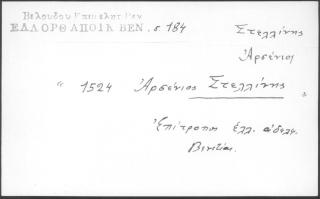 Βελουδου Επιμελητ Βεν
ΕΛΛΟΡΘ ΑΠΟΙΚ ΒΕΝ. σ. 184
Στελλίνης
Ἀρσένιος
" 1524 Ἀρσένιος Στελλίνης "
Ἐπίτροπος ἑλλ. ἀδελφ.
Βενετίας.